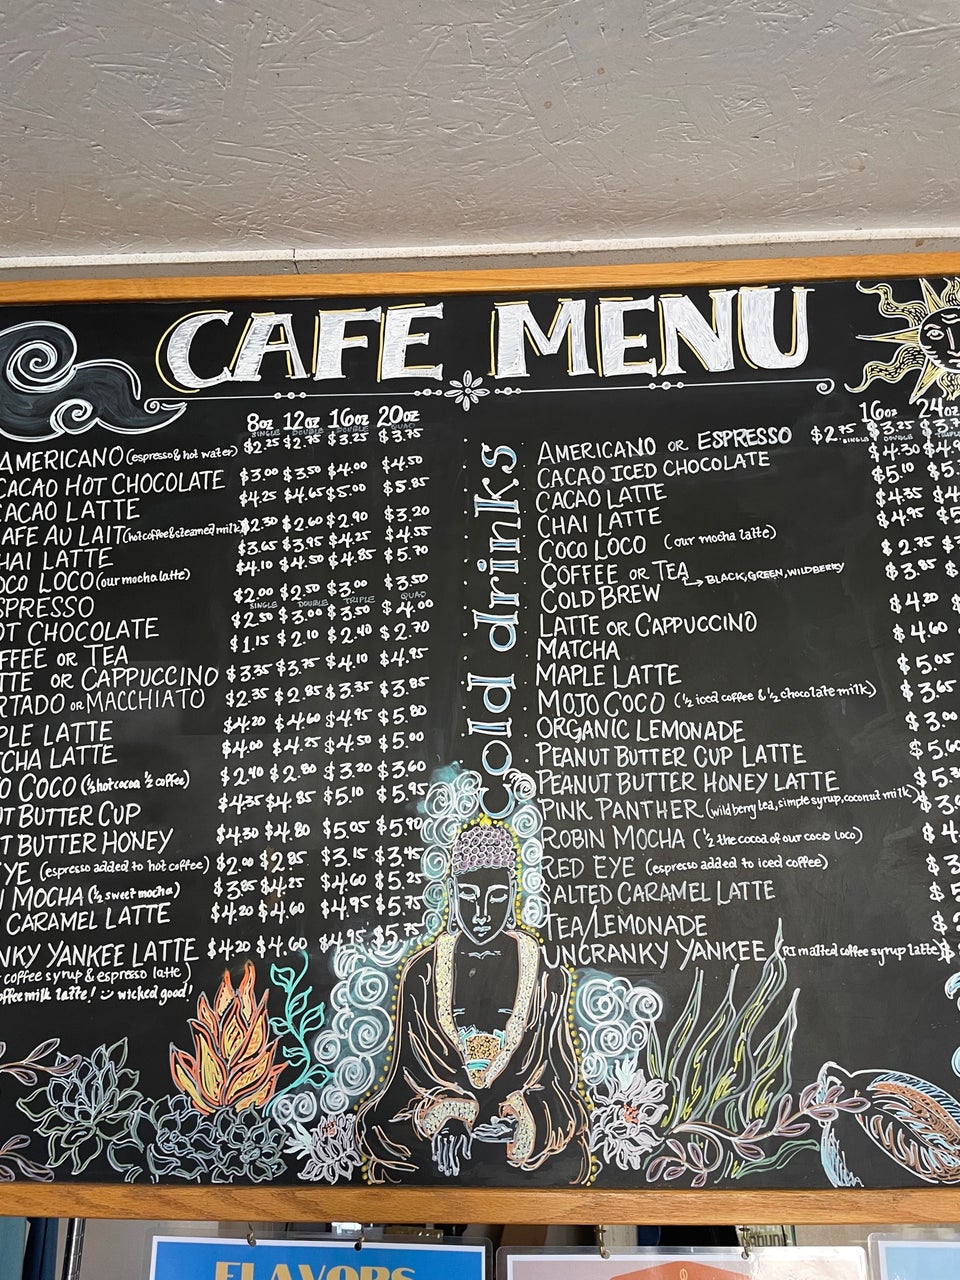 CAFE MENU
8oz 12oz 16oz 20oz
SINGLE DOUBLE DOUBLE QUAD
AMERICANO (espresso & hot water) $2.25 $2.75 $3.25 $3.75
CACAO HOT CHOCOLATE $3.00 $3.50 $4.00 $4.50
CACAO LATTE $4.25 $4.65 $5.00 $5.85
AFE AU LAIT (hot coffee & steamed milk) $2.30 $2.60 $2.90 $3.20
HAI LATTE $3.65 $3.95 $4.25 $4.55
OCO LOCO (our mocha latte) $4.10 $4.50 $4.85 $5.70
SPRESSO $2.00 $2.50 $3.00 $3.50
SINGLE DOUBLE TRIPLE QUAD
OT CHOCOLATE $2.50 $3.00 $3.50 $4.00
FFEE OR TEA $1.15 $2.10 $2.40 $2.70
TTE OR CAPPUCCINO $3.35 $3.75 $4.10 $4.95
RTADO OR MACCHIATO $2.35 $2.85 $3.35 $3.85
PLE LATTE $4.20 $4.60 $4.95 $5.80
TCHA LATTE $4.00 $4.25 $4.50 $5.00
O COCO (½ hot cocoa ½ coffee) $2.40 $2.80 $3.20 $3.60
UT BUTTER CUP $4.35 $4.85 $5.10 $5.95
T BUTTER HONEY $4.30 $4.80 $5.05 $5.90
YE (espresso added to hot coffee) $2.00 $2.85 $3.15 $3.45
N MOCHA (½ sweet mocha) $3.85 $4.25 $4.60 $5.25
CARAMEL LATTE $4.20 $4.60 $4.95 $5.75
NKY YANKEE LATTE $4.20 $4.60 $4.95 $5.75
coffee syrup & espresso latte)
offee milk latte! wicked good!
cold drinks
16oz 24oz
AMERICANO OR ESPRESSO $2.75 $3.25 $3.7
SINGLE DOUBLE TRIPLE
CACAO ICED CHOCOLATE $4.30 $4.9
CACAO LATTE $5.10 $5.
CHAI LATTE $4.35 $4
COCO LOCO (our mocha latte) $4.95 $5
COFFEE OR TEA → BLACK, GREEN, WILDBERRY $2.75 $3
COLD BREW $3.85 $
LATTE OR CAPPUCCINO $4.20 $
MATCHA $4.60
MAPLE LATTE $5.05
MOJO COCO (½ iced coffee & ½ chocolate milk) $3.65
ORGANIC LEMONADE $3.00
PEANUT BUTTER CUP LATTE $5.60
PEANUT BUTTER HONEY LATTE $5.
PINK PANTHER (wild berry tea, simple syrup, coconut milk) $3.
ROBIN MOCHA (½ the cocoa of our coco loco) $4.
RED EYE (espresso added to iced coffee) $3
SALTED CARAMEL LATTE $5
TEA/LEMONADE $
UNCRANKY YANKEE (RI malted coffee syrup latte) $
FLAVORS